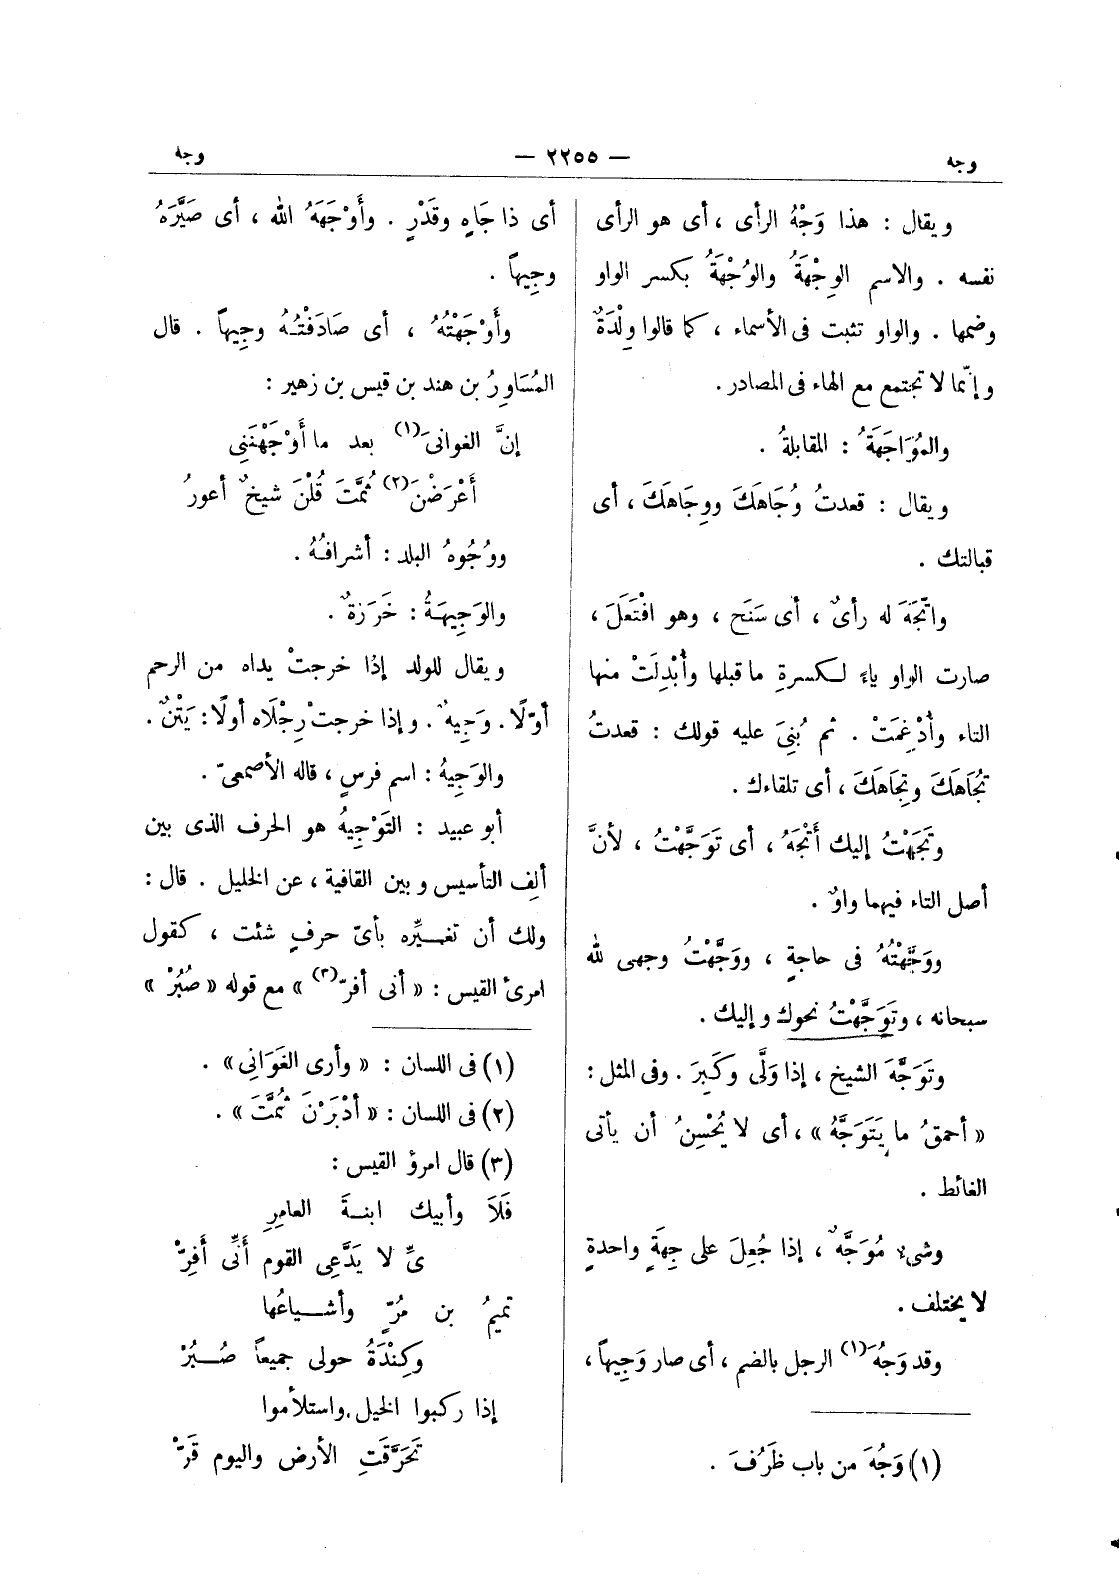 وجه — ٢٢٥٥ — وجه
ويقال : هذا وَجْهُ الرأى ، أى هو الرأى
نفسه . والاسم الوِجْهَةُ والوُجْهَةُ بكسر الواو
وضمها . والواو تثبت فى الأسماء ، كما قالوا وِلْدَةٌ
وإنّما لا تجتمع مع الهاء فى المصادر .
والمُوَاجَهَةُ : المقابلةُ .
ويقال : قعدتُ وُجَاهَكَ ووِجَاهَكَ ، أى
قبالتك .
واتّجَهَ له رأىٌ ، أى سَنَح ، وهو افْتَعَلَ ،
صارت الواو ياءً لكسرةِ ما قبلها وأُبْدِلَتْ منها
التاء وأُدْغِمَتْ . ثم بُنِىَ عليه قولك : قعدتُ
تُجَاهَكَ وتِجَاهَكَ ، أى تلقاءك .
وتَجَهْتُ إليك أَتْجَهُ ، أى تَوَجَّهْتُ ، لأنَّ
أصل التاء فيهما واوٌ .
ووَجَّهْتُهُ فى حاجةٍ ، ووَجَّهْتُ وجهى لله
سبحانه ، وتَوَجَّهْتُ نحوك وإليك .
وتَوَجَّهَ الشيخ ، إذا وَلَّى وكَبِرَ . وفى المثل :
« أحمقُ ما يَتَوَجَّهُ » ، أى لا يُحْسِنُ أن يأتى
الغائط .
وشىء مُوَجَّهٌ ، إذا جُعِلَ على جِهَةٍ واحدةٍ
لا يختلف .
وقد وَجُهَ(١) الرجل بالضم ، أى صار وَجِيهاً ،
(١) وَجُهَ من باب ظَرُفَ .
أى ذا جَاهٍ وقَدْرٍ . وأَوْجَهَهُ الله ، أى صَيَّرَهُ
وجِيهاً .
وأَوْجَهْتُهُ ، أى صَادَفْتُهُ وجِيهاً . قال
المُسَاوِرُ بن هند بن قيس بن زهير :
إنَّ الغوانىَ(١) بعد ما أَوْجَهْنَنِى
أَعْرَضْنَ(٢) ثُمَّتَ قُلْنَ شيخٌ أعورُ
ووُجُوهُ البلد : أشرافُهُ .
والوَجِيهَةُ : خَرَزةٌ .
ويقال للولد إذا خرجتْ يداه من الرحم
أوّلًا . وَجِيهٌ . وإذا خرجتْ رِجْلَاه أولًا : يَتْنٌ .
والوَجِيهُ : اسم فرسٍ ، قاله الأصمعىّ .
أبو عبيد : التَوْجِيهُ هو الحرف الذى بين
ألِف التأسيس وبين القافية ، عن الخليل . قال :
ولك أن تغيِّره بأىّ حرفٍ شئت ، كقول
امرئ القيس : « أنى أفرّ(٣) » مع قوله « صُبُرْ »
(١) فى اللسان : « وأرى الغَوَانِى » .
(٢) فى اللسان : « أدْبَرْنَ ثُمَّتَ » .
(٣) قال امرؤ القيس :
فَلَا وأبيك ابنةَ العامِرِ
ىِّ لا يَدَّعِى القوم أَنِّى أَفِرّْ
تميمُ بن مُرٍّ وأشياعُها
وكِنْدَةُ حولى جميعاً صُبُرْ
إذا ركبوا الخيل واستلأموا
تَحَرَّقَتِ الأرض واليوم قَرّْ